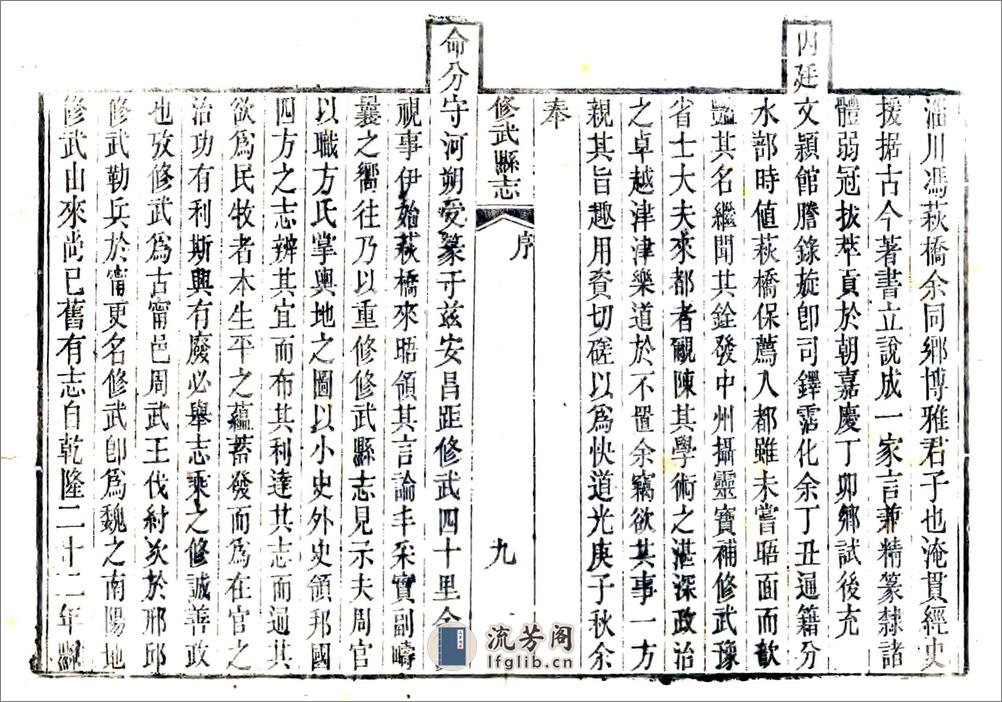 淄川馮萩橋余同鄉博雅君子也淹貫經史
援据古今著書立說成一家言兼精篆隸諸
體弱冠拔萃貢於朝嘉慶丁卯鄉試後充
內廷文穎館謄錄旋卽司鐸霑化余丁丑通籍分
水部時值萩橋保薦入都雖未嘗晤面而歆
豔其名繼聞其銓發中州攝靈寶補修武豫
省士大夫來都者覼陳其學術之湛深政治
之卓越津津樂道於不置余竊欲共事一方
親其旨趣用資切磋以爲快道光庚子秋余
奉
修武縣志 序 九
命分守河朔受篆于兹安昌距修武四十里今
視事伊始萩橋來晤領其言論丰采實副疇
曩之嚮往乃以重修修武縣志見示夫周官
以職方氏掌輿地之圖以小史外史領邦國
四方之志辨其宜而布其利達其志而通其
欲爲民牧者本生平之蘊蓄發而爲在官之
治功有利斯興有廢必舉志乘之修誠善政
也攷修武爲古甯邑周武王伐紂次於邢邱
修武勒兵於甯更名修武卽爲魏之南陽地
修武山來尚已舊有志自乾隆二十二年
流芳阁
lfglib.cn